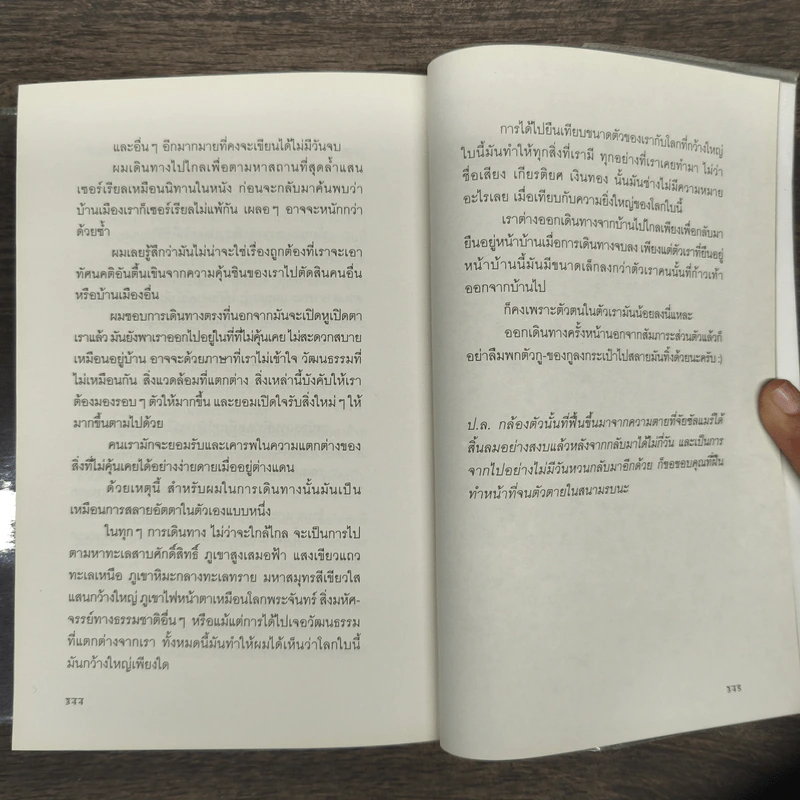 และอื่นๆ อีกมากมายที่คงจะเขียนได้ไม่มีวันจบ
ผมเดินทางไปไกลเพื่อตามหาสถานที่สุดล้ำแสน
เซอร์เรียลเหมือนนิทานในหนัง ก่อนจะกลับมาค้นพบว่า
บ้านเมืองเราก็เซอร์เรียลไม่แพ้กัน เผลอๆ อาจจะหนักกว่า
ด้วยซ้ำ
ผมเลยรู้สึกว่ามันไม่น่าจะใช่เรื่องถูกต้องที่เราจะเอา
ทัศนคติอันตื้นเขินจากความคุ้นชินของเราไปตัดสินคนอื่น
หรือบ้านเมืองอื่น
ผมชอบการเดินทางตรงที่นอกจากมันจะเปิดหูเปิดตา
เราแล้ว มันยังพาเราออกไปอยู่ในที่ที่ไม่คุ้นเคย ไม่สะดวกสบาย
เหมือนอยู่บ้าน อาจจะด้วยภาษาที่เราไม่เข้าใจ วัฒนธรรมที่
ไม่เหมือนกัน สิ่งแวดล้อมที่แตกต่าง สิ่งเหล่านี้บังคับให้เรา
ต้องมองรอบๆ ตัวให้มากขึ้น และยอมเปิดใจรับสิ่งใหม่ๆ ให้
มากขึ้นตามไปด้วย
คนเรามักจะยอมรับและเคารพในความแตกต่างของ
สิ่งที่ไม่คุ้นเคยได้อย่างง่ายดายเมื่ออยู่ต่างแดน
ด้วยเหตุนี้ สำหรับผมในการเดินทางนั้นมันเป็น
เหมือนการสลายอัตตาในตัวเองแบบหนึ่ง
ในทุกๆ การเดินทาง ไม่ว่าจะใกล้ไกล จะเป็นการไป
ตามหาทะเลสาบศักดิ์สิทธิ์ ภูเขาสูงเสมอฟ้า แสงเขียวแถว
ทะเลเหนือ ภูเขาหิมะกลางทะเลทราย มหาสมุทรสีเขียวใส
แสนกว้างใหญ่ ภูเขาไฟหน้าตาเหมือนโลกพระจันทร์ สิ่งมหัศ-
จรรย์ทางธรรมชาติอื่นๆ หรือแม้แต่การได้ไปเจอวัฒนธรรม
ที่แตกต่างจากเรา ทั้งหมดนี้มันทำให้ผมได้เห็นว่าโลกใบนี้
มันกว้างใหญ่เพียงใด
การได้ไปยืนเทียบขนาดตัวของเรากับโลกที่กว้างใหญ่
ใบนี้มันทำให้ทุกสิ่งที่เรามี ทุกอย่างที่เราเคยทำมา ไม่ว่า
ชื่อเสียง เกียรติยศ เงินทอง นั้นมันช่างไม่มีความหมาย
อะไรเลย เมื่อเทียบกับความยิ่งใหญ่ของโลกใบนี้
เราต่างออกเดินทางจากบ้านไปไกลเพียงเพื่อกลับมา
ยืนอยู่หน้าบ้านเมื่อการเดินทางจบลง เพียงแต่ตัวเราที่ยืนอยู่
หน้าบ้านนี้มันมีขนาดเล็กลงกว่าตัวเราคนนั้นที่ก้าวเท้า
ออกจากบ้านไป
ก็คงเพราะตัวตนในตัวเรามันน้อยลงนี่แหละ
ออกเดินทางครั้งหน้านอกจากสัมภาระส่วนตัวแล้วก็
อย่าลืมพกตัวกู-ของกูลงกระเป๋าไปสลายมันทิ้งด้วยนะครับ :)
ป.ล. กล้องตัวนั้นที่ฟื้นขึ้นมาจากความตายที่จัยซัลแมร์ได้
สิ้นลมอย่างสงบแล้วหลังจากกลับมาได้ไม่กี่วัน และเป็นการ
จากไปอย่างไม่มีวันหวนกลับมาอีกด้วย ก็ขอขอบคุณที่ฝืน
ทำหน้าที่จนตัวตายในสนามรบนะ